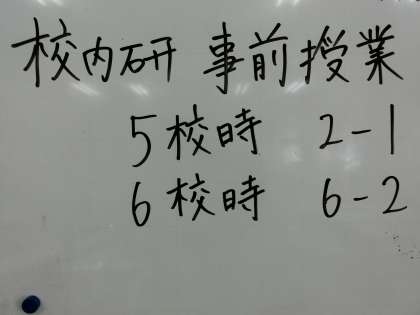 校内研 事前授業
5校時 2-1
6校時 6-2